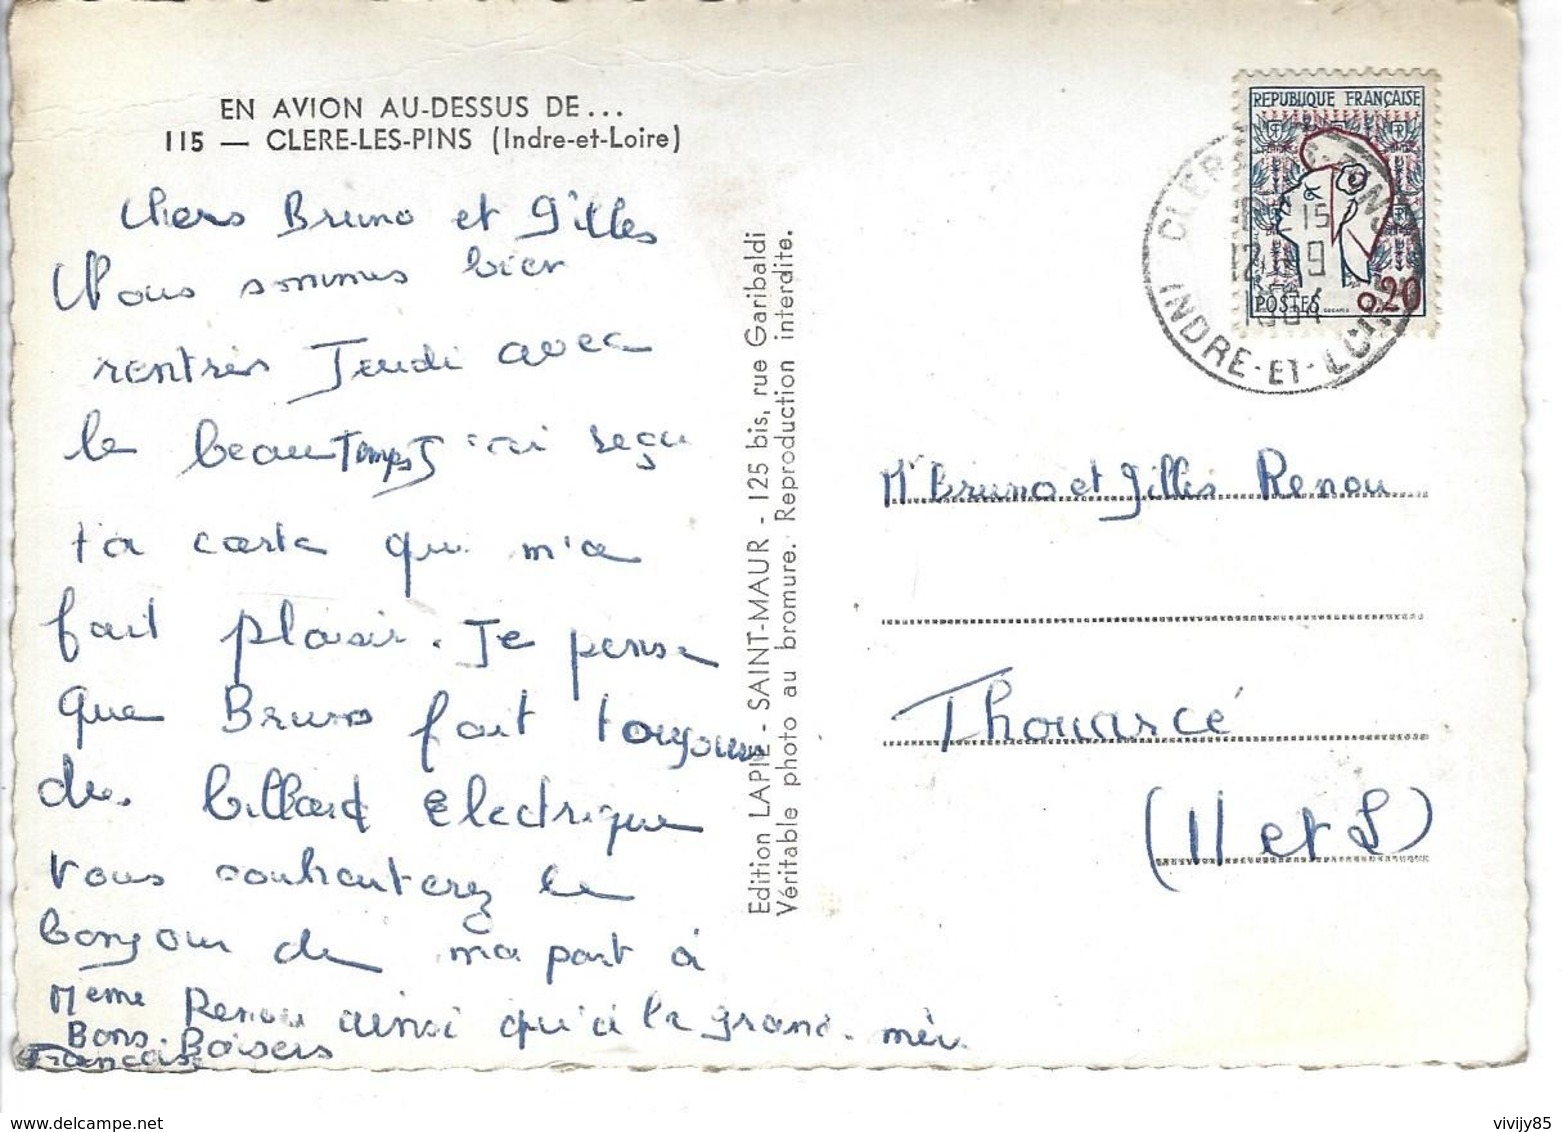 EN AVION AU-DESSUS DE...
115 — CLERE-LES-PINS (Indre-et-Loire)
Chers Bruno et Gilles
Nous sommes bien
rentrés Jeudi avec
le beau Temps J'ai reçu
ta carte qui m'a
fait plaisir. Je pense
que Bruno fait toujours
du billard Electrique
vous souhauterez le
bonjour de ma part à
Meme Renou ainsi qu'à la grand-mère
Bons Baisers
Francoise
Edition LAPIE - SAINT-MAUR - 125 bis, rue Garibaldi
Véritable photo au bromure. Reproduction interdite.
REPUBLIQUE FRANÇAISE
POSTES 0.20
15
12 9
1964
INDRE-ET-LOIRE
Mr Bruno et Gilles Renou
Thouarcé
(M et L)
vivijy85